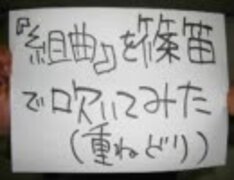 『組曲』を篠笛
で吹いてみた
(重ねどり)